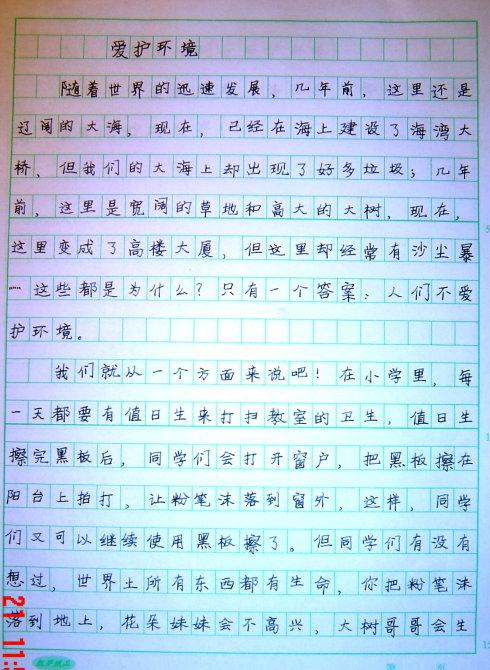 爱护环境
随着世界的迅速发展，几年前，这里还是
辽阔的大海，现在，已经在海上建设了海湾大
桥，但我们的大海上却出现了好多垃圾；几年
前，这里是宽阔的草地和高大的大树，现在，
这里变成了高楼大厦，但这里却经常有沙尘暴
……这些都是为什么？只有一个答案：人们不爱
护环境。
我们就从一个方面来说吧！在小学里，每
一天都要有值日生来打扫教室的卫生，值日生
擦完黑板后，同学们会打开窗户，把黑板擦在
阳台上拍打，让粉笔沫落到窗外，这样，同学
们又可以继续使用黑板擦了。但同学们有没有
想过，世界上所有东西都有生命，你把粉笔沫
落到地上，花朵妹妹会不高兴，大树哥哥会生